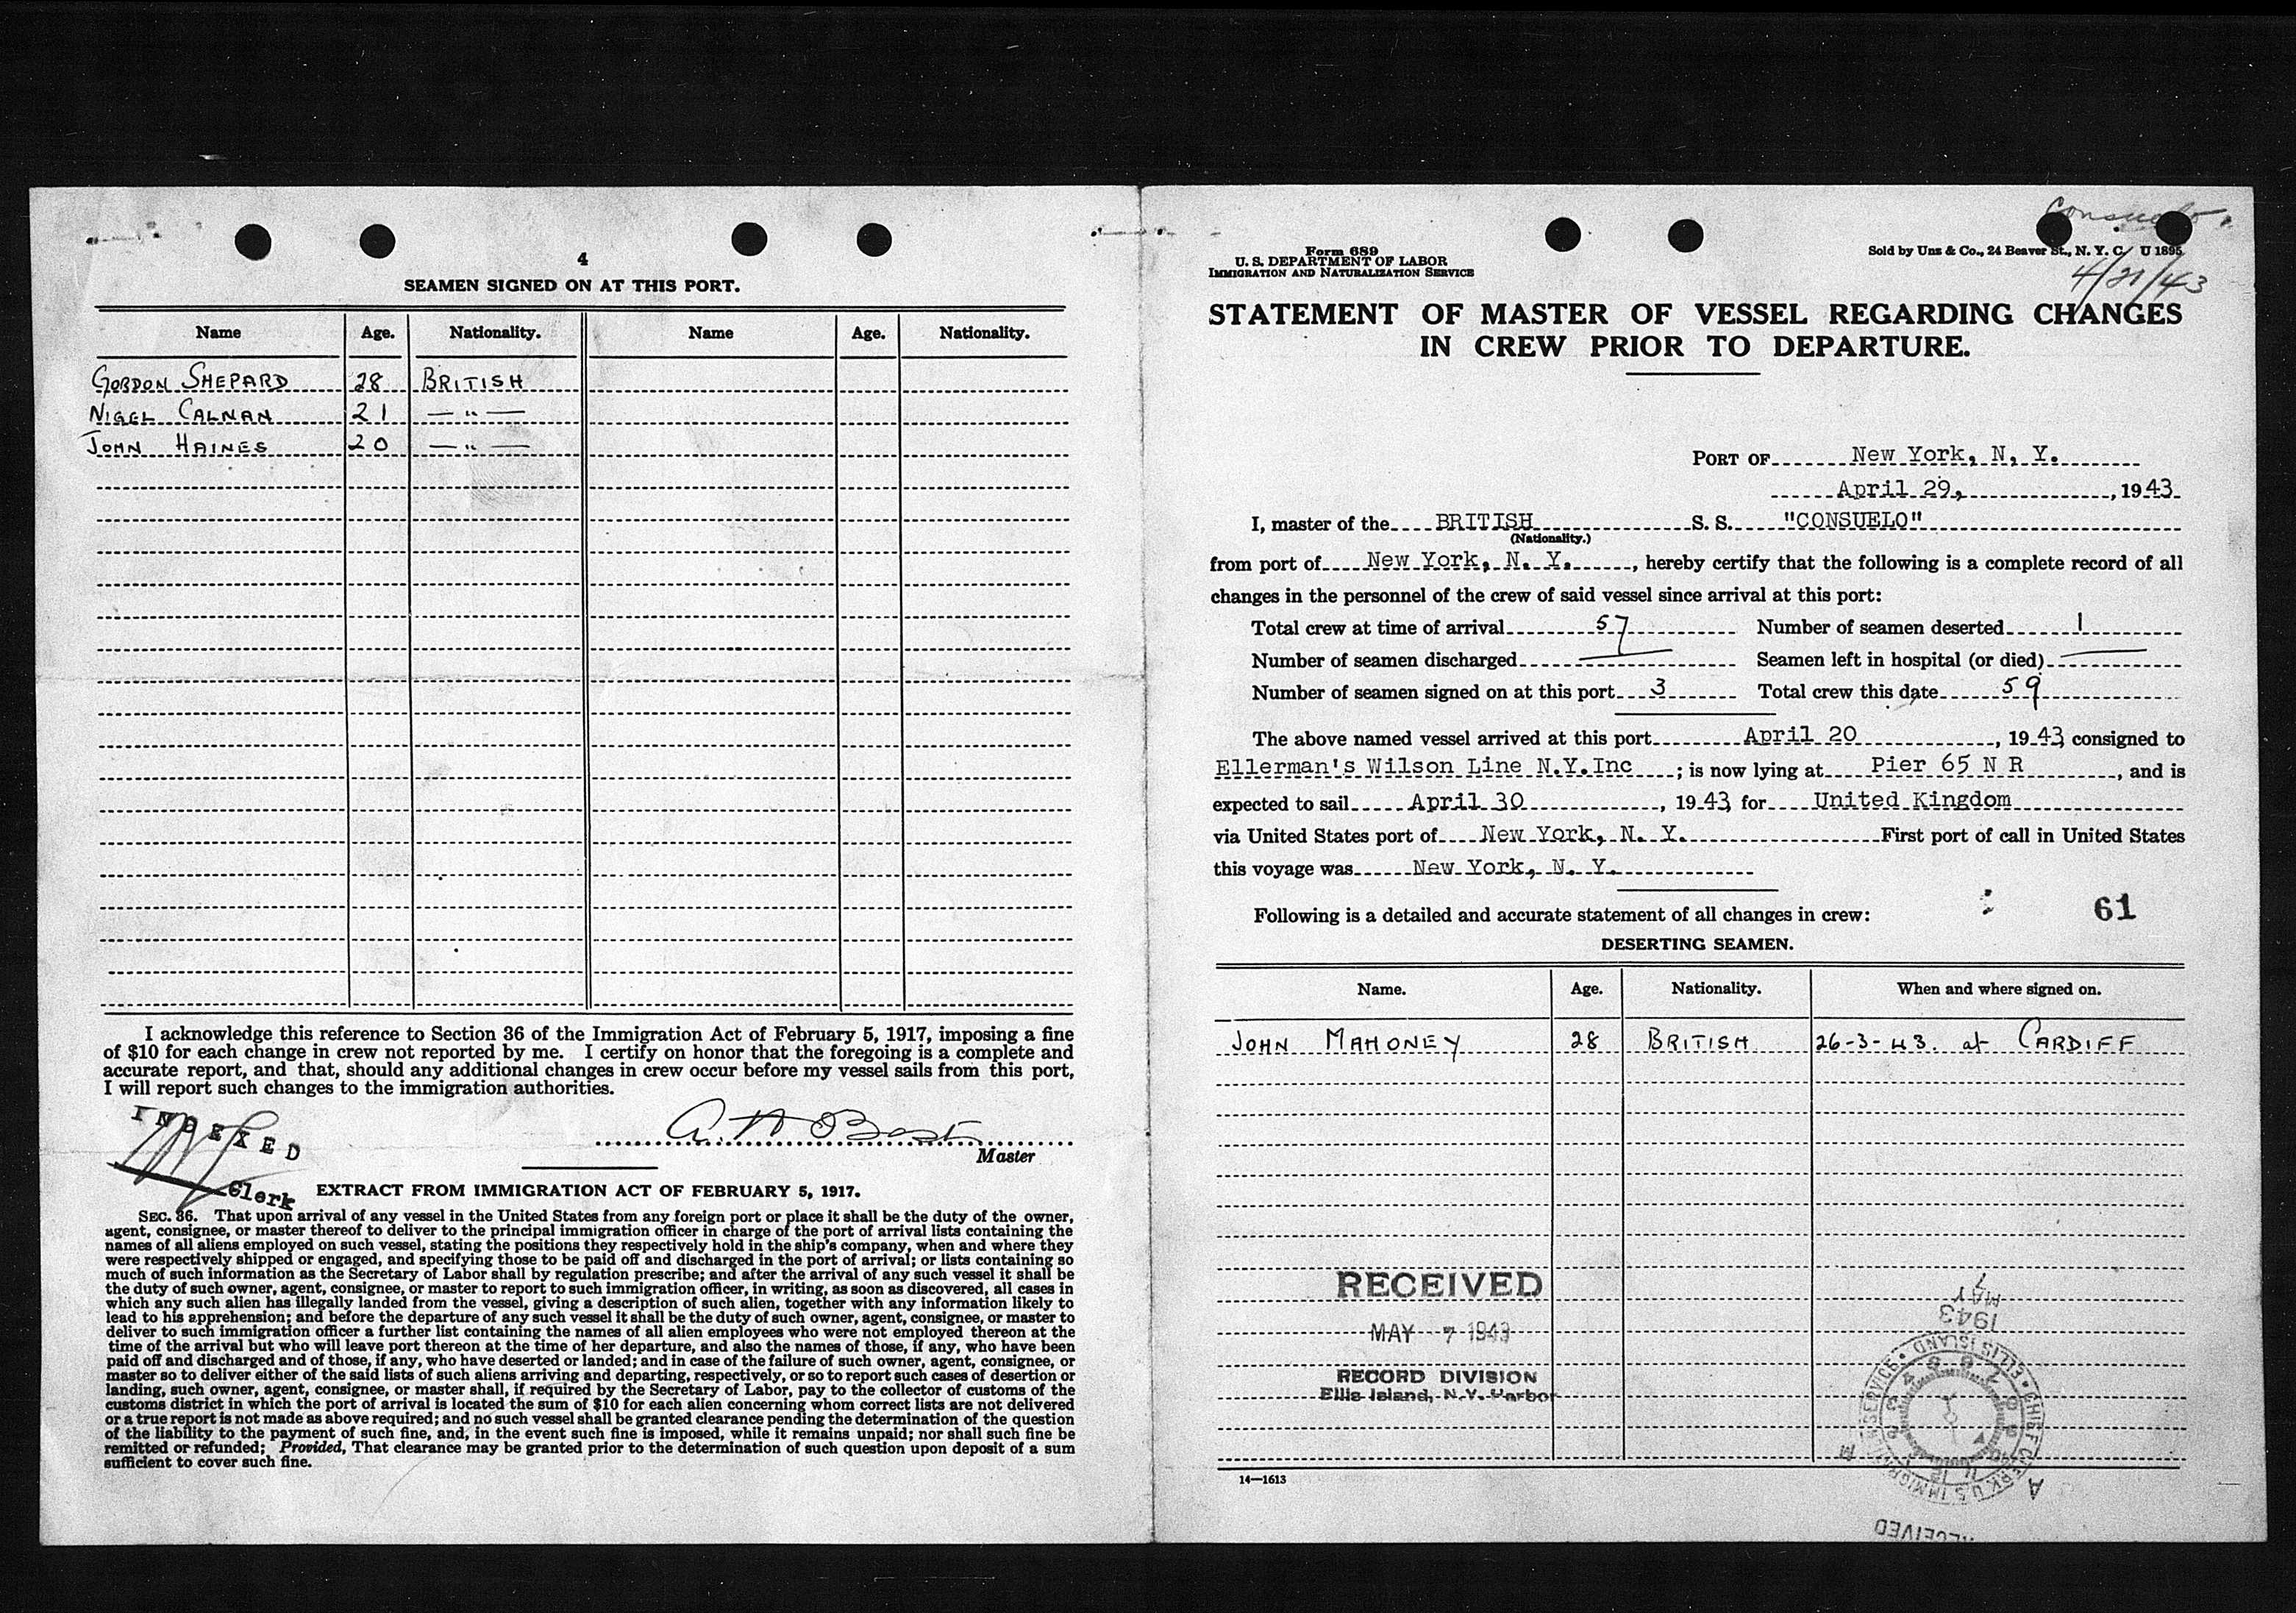 4
SEAMEN SIGNED ON AT THIS PORT.
Name Age. Nationality. Name Age. Nationality.
GORDON SHEPARD 28 BRITISH
NIGEL CALNAN 21 — " —
JOHN HAINES 20 — " —
I acknowledge this reference to Section 36 of the Immigration Act of February 5, 1917, imposing a fine
of $10 for each change in crew not reported by me. I certify on honor that the foregoing is a complete and
accurate report, and that, should any additional changes in crew occur before my vessel sails from this port,
I will report such changes to the immigration authorities.
INDEXED
Clerk
Master
EXTRACT FROM IMMIGRATION ACT OF FEBRUARY 5, 1917.
SEC. 36. That upon arrival of any vessel in the United States from any foreign port or place it shall be the duty of the owner,
agent, consignee, or master thereof to deliver to the principal immigration officer in charge of the port of arrival lists containing the
names of all aliens employed on such vessel, stating the positions they respectively hold in the ship's company, when and where they
were respectively shipped or engaged, and specifying those to be paid off and discharged in the port of arrival; or lists containing so
much of such information as the Secretary of Labor shall by regulation prescribe; and after the arrival of any such vessel it shall be
the duty of such owner, agent, consignee, or master to report to such immigration officer, in writing, as soon as discovered, all cases in
which any such alien has illegally landed from the vessel, giving a description of such alien, together with any information likely to
lead to his apprehension; and before the departure of any such vessel it shall be the duty of such owner, agent, consignee, or master to
deliver to such immigration officer a further list containing the names of all alien employees who were not employed thereon at the
time of the arrival but who will leave port thereon at the time of her departure, and also the names of those, if any, who have been
paid off and discharged and of those, if any, who have deserted or landed; and in case of the failure of such owner, agent, consignee, or
master so to deliver either of the said lists of such aliens arriving and departing, respectively, or so to report such cases of desertion or
landing, such owner, agent, consignee, or master shall, if required by the Secretary of Labor, pay to the collector of customs of the
customs district in which the port of arrival is located the sum of $10 for each alien concerning whom correct lists are not delivered
or a true report is not made as above required; and no such vessel shall be granted clearance pending the determination of the question
of the liability to the payment of such fine, and, in the event such fine is imposed, while it remains unpaid; nor shall such fine be
remitted or refunded; Provided, That clearance may be granted prior to the determination of such question upon deposit of a sum
sufficient to cover such fine.
Consuelo
Form 689
U. S. DEPARTMENT OF LABOR
IMMIGRATION AND NATURALIZATION SERVICE
Sold by Unz & Co., 24 Beaver St., N. Y. C. U 1895
4/21/43
STATEMENT OF MASTER OF VESSEL REGARDING CHANGES
IN CREW PRIOR TO DEPARTURE.
PORT OF New York, N. Y.
April 29, , 1943
I, master of the BRITISH S. S. "CONSUELO"
(Nationality.)
from port of New York, N. Y. , hereby certify that the following is a complete record of all
changes in the personnel of the crew of said vessel since arrival at this port:
Total crew at time of arrival 57 Number of seamen deserted 1
Number of seamen discharged — Seamen left in hospital (or died) —
Number of seamen signed on at this port 3 Total crew this date 59
The above named vessel arrived at this port April 20 , 1943 consigned to
Ellerman's Wilson Line N.Y.Inc ; is now lying at Pier 65 N R , and is
expected to sail April 30 , 1943 for United Kingdom
via United States port of New York, N. Y. First port of call in United States
this voyage was New York, N. Y.
Following is a detailed and accurate statement of all changes in crew:
61
DESERTING SEAMEN.
Name. Age. Nationality. When and where signed on.
JOHN MAHONEY 28 BRITISH 26-3-43. at CARDIFF
RECEIVED
MAY 7 1943
RECORD DIVISION
Ellis Island, N.Y. Harbor
MAY 7
1943
14—1613
RECEIVED